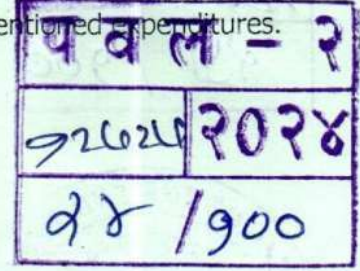 entioned expenditures.
प व ल - २
२०२४
२४ / १००